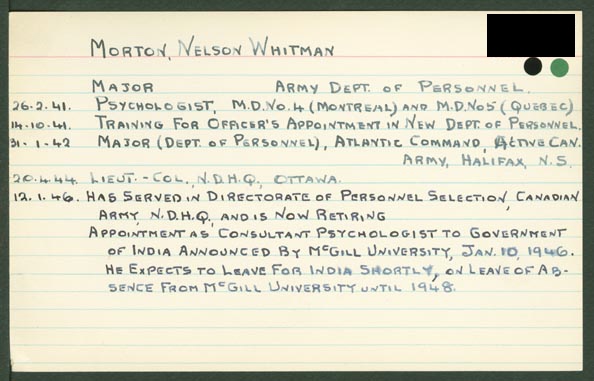 MORTON, NELSON WHITMAN
MAJOR ARMY DEPT. OF PERSONNEL.
26.2.41. PSYCHOLOGIST, M.D.NO.4 (MONTREAL) AND M.D.NO5 (QUEBEC)
14.10.41. TRAINING FOR OFFICER'S APPOINTMENT IN NEW DEPT. OF PERSONNEL.
31.1.42 MAJOR (DEPT. OF PERSONNEL), ATLANTIC COMMAND, ACTIVE CAN.
ARMY, HALIFAX, N.S.
20.4.44. LIEUT.-COL., N.D.H.Q., OTTAWA.
12.1.46. HAS SERVED IN DIRECTORATE OF PERSONNEL SELECTION, CANADIAN
ARMY, N.D.H.Q., AND IS NOW RETIRING
APPOINTMENT AS CONSULTANT PSYCHOLOGIST TO GOVERNMENT
OF INDIA ANNOUNCED BY McGILL UNIVERSITY, JAN. 10, 1946.
HE EXPECTS TO LEAVE FOR INDIA SHORTLY, ON LEAVE OF AB-
SENCE FROM McGILL UNIVERSITY UNTIL 1948.